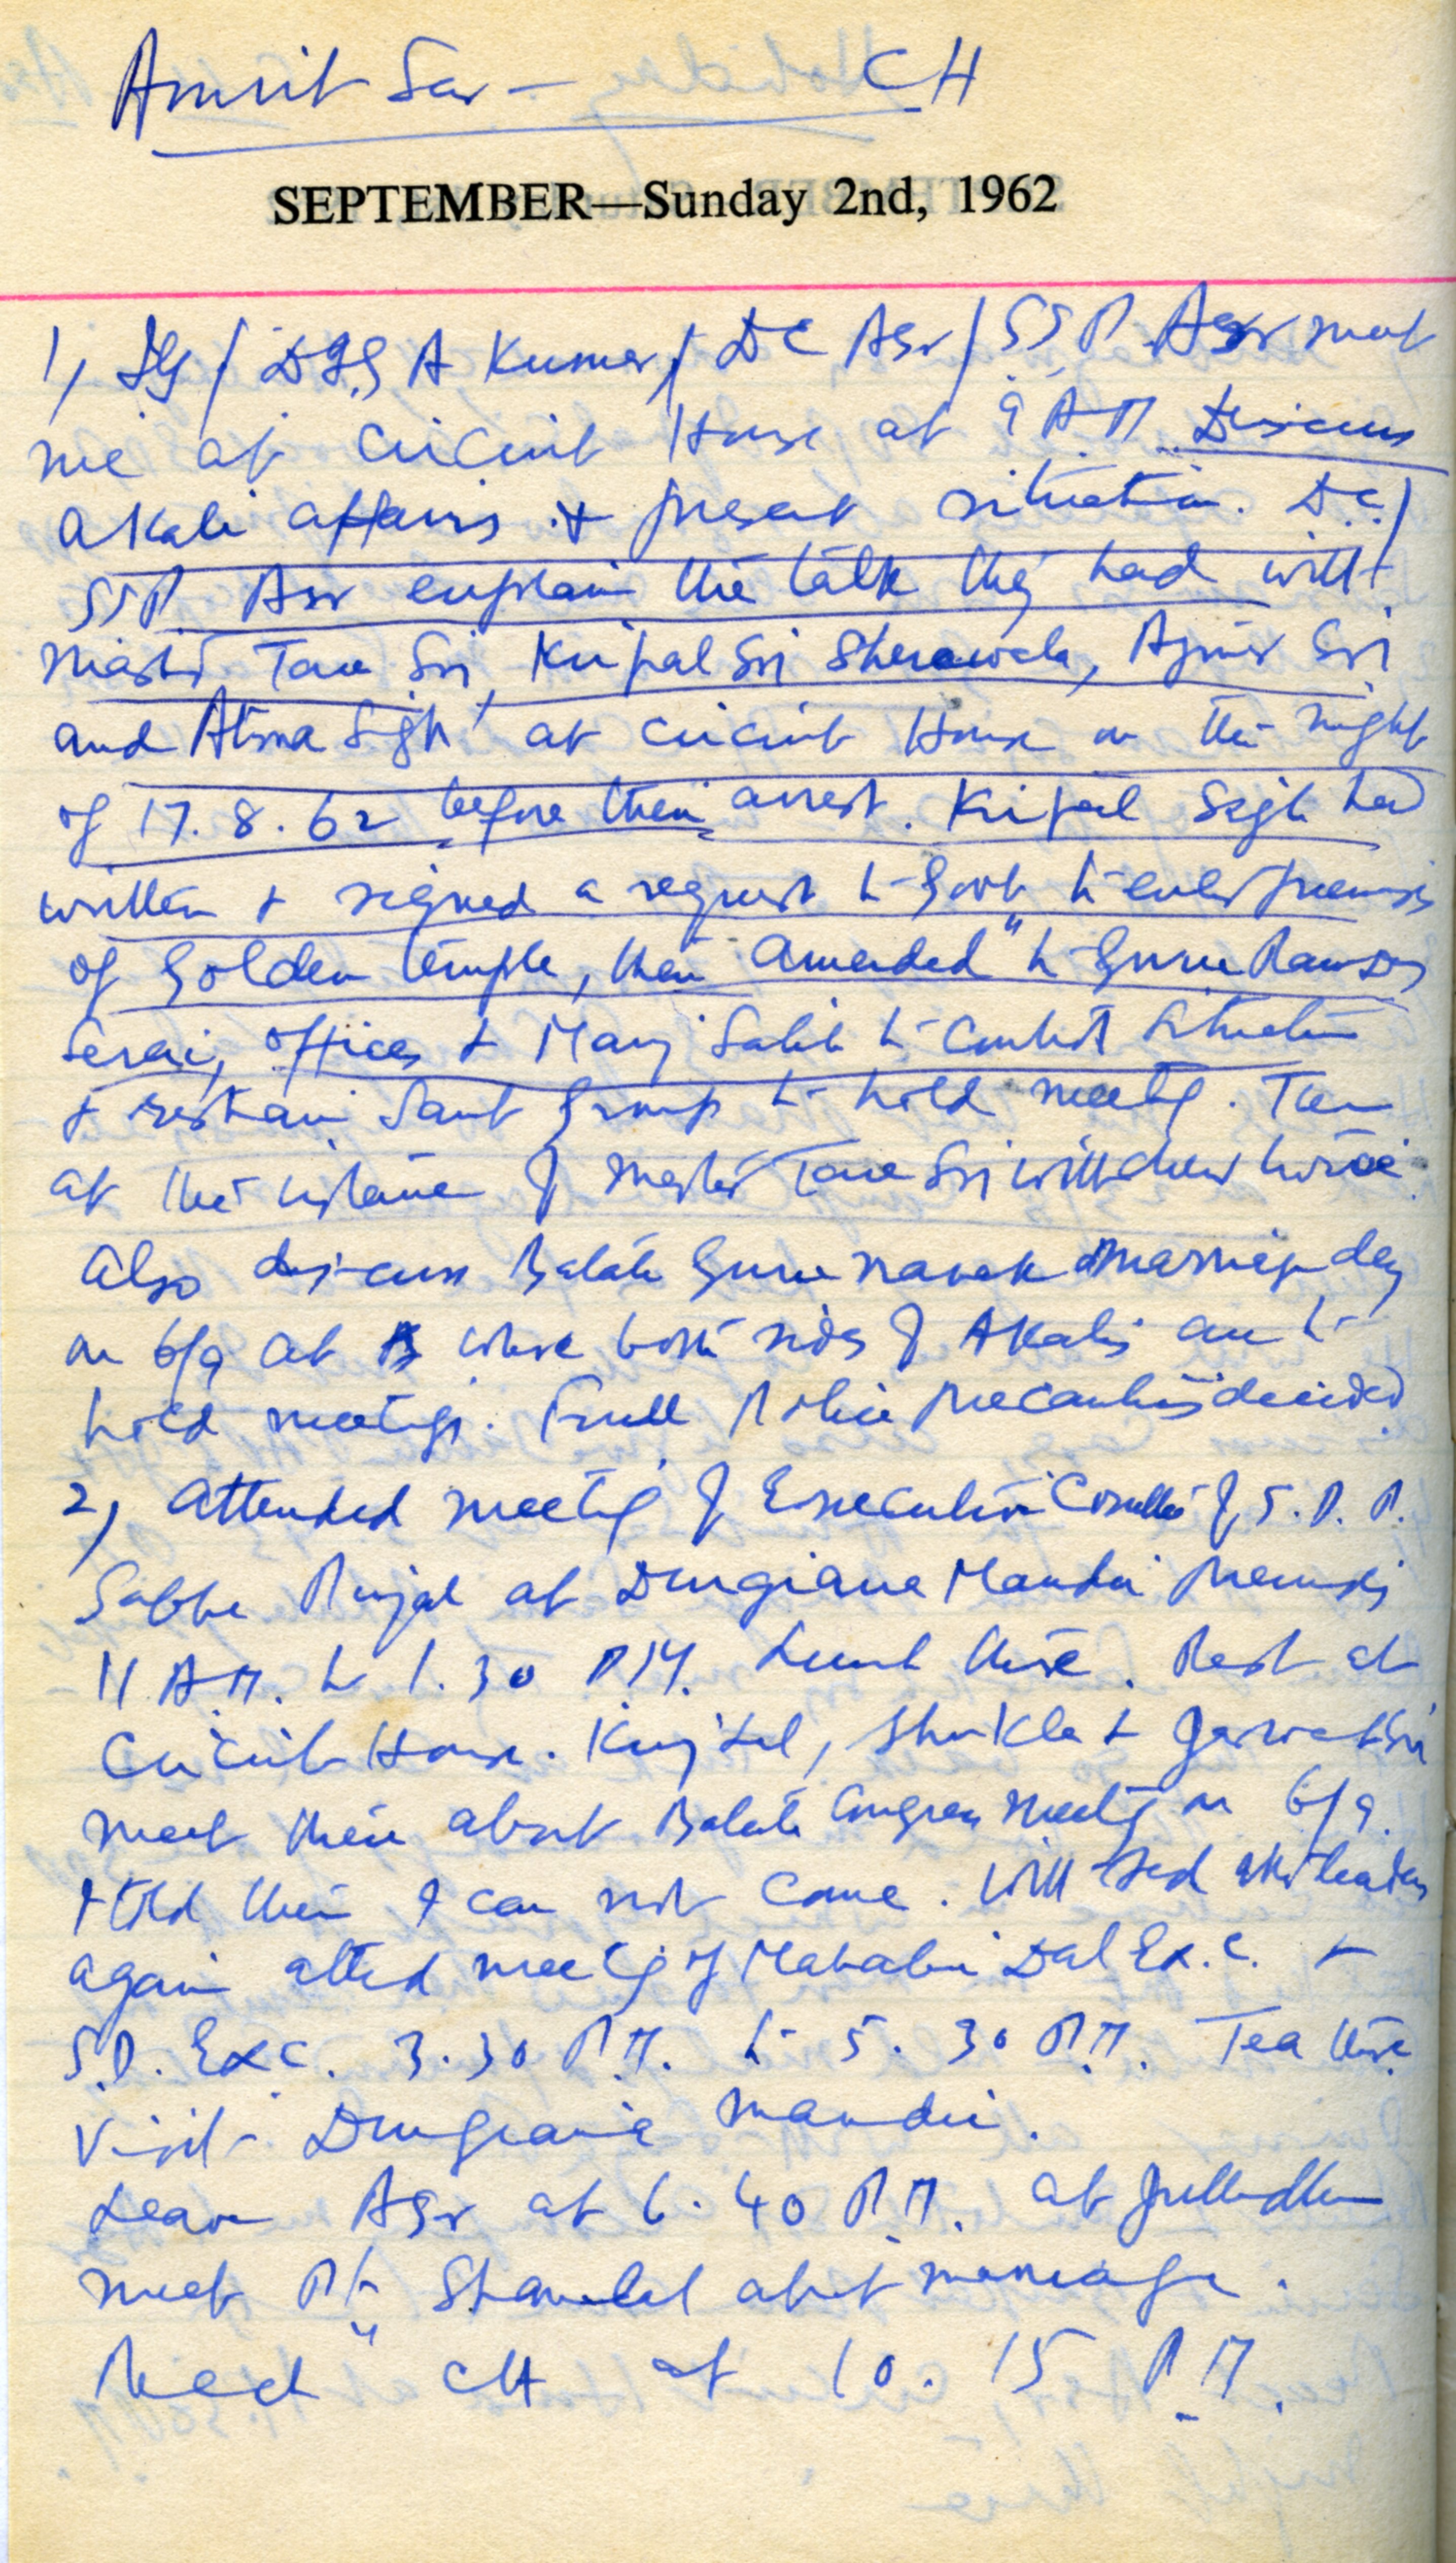 Amrit Sar - CH
SEPTEMBER—Sunday 2nd, 1962
1, IG / DIG A Kumar / DC Asr / SSP Asr meet
me at Circuit House at 9 A M Discuss
Akali affairs & present situation. D.C/
SSP Asr explain the talk they had with
Master Tara Sri, Kripal Sri Sherawala, Ajmer Sri
and Atma Sigh at circuit House on the night
of 17. 8. 62 before their arrest. Kripal Sigh had
written & signed a request to Govt to enter premises
of Golden temple, then amended " to Guru Ramdas
Serai, offices & Manj Sahib to Control Situation
& restrain Sant Group to hold meetg. Then
at the instance of Master Tara Sri withdrew
Also discuss Batala Guru Nanak marriage day
on 6/9 at where both sides of Akalis are to
hold meetigs. Full Police Precautions decided
2, Attended meetig of Executive Comittee of S. P. P.
Sabha Punjab at Durgiana Mandir Premises
11 A.M. to 1. 30 P M. Lunch there. Rest at
Circuit House. , Shukla &
meet there about Batala Congress meetig on 6/9.
I told them I can not come. Will send other leaders
again attend meetig of Mahabir Dal Ex. C. &
S.P. Ex C. 3. 30 P. M. to 5. 30 P. M. Tea there
Visit Durgiana Mandir.
Leave Asr at 6. 40 P. M. at Jullundur
meet Pt. Shamlal about marriage.
Reach CH at 10. 15 P. M.